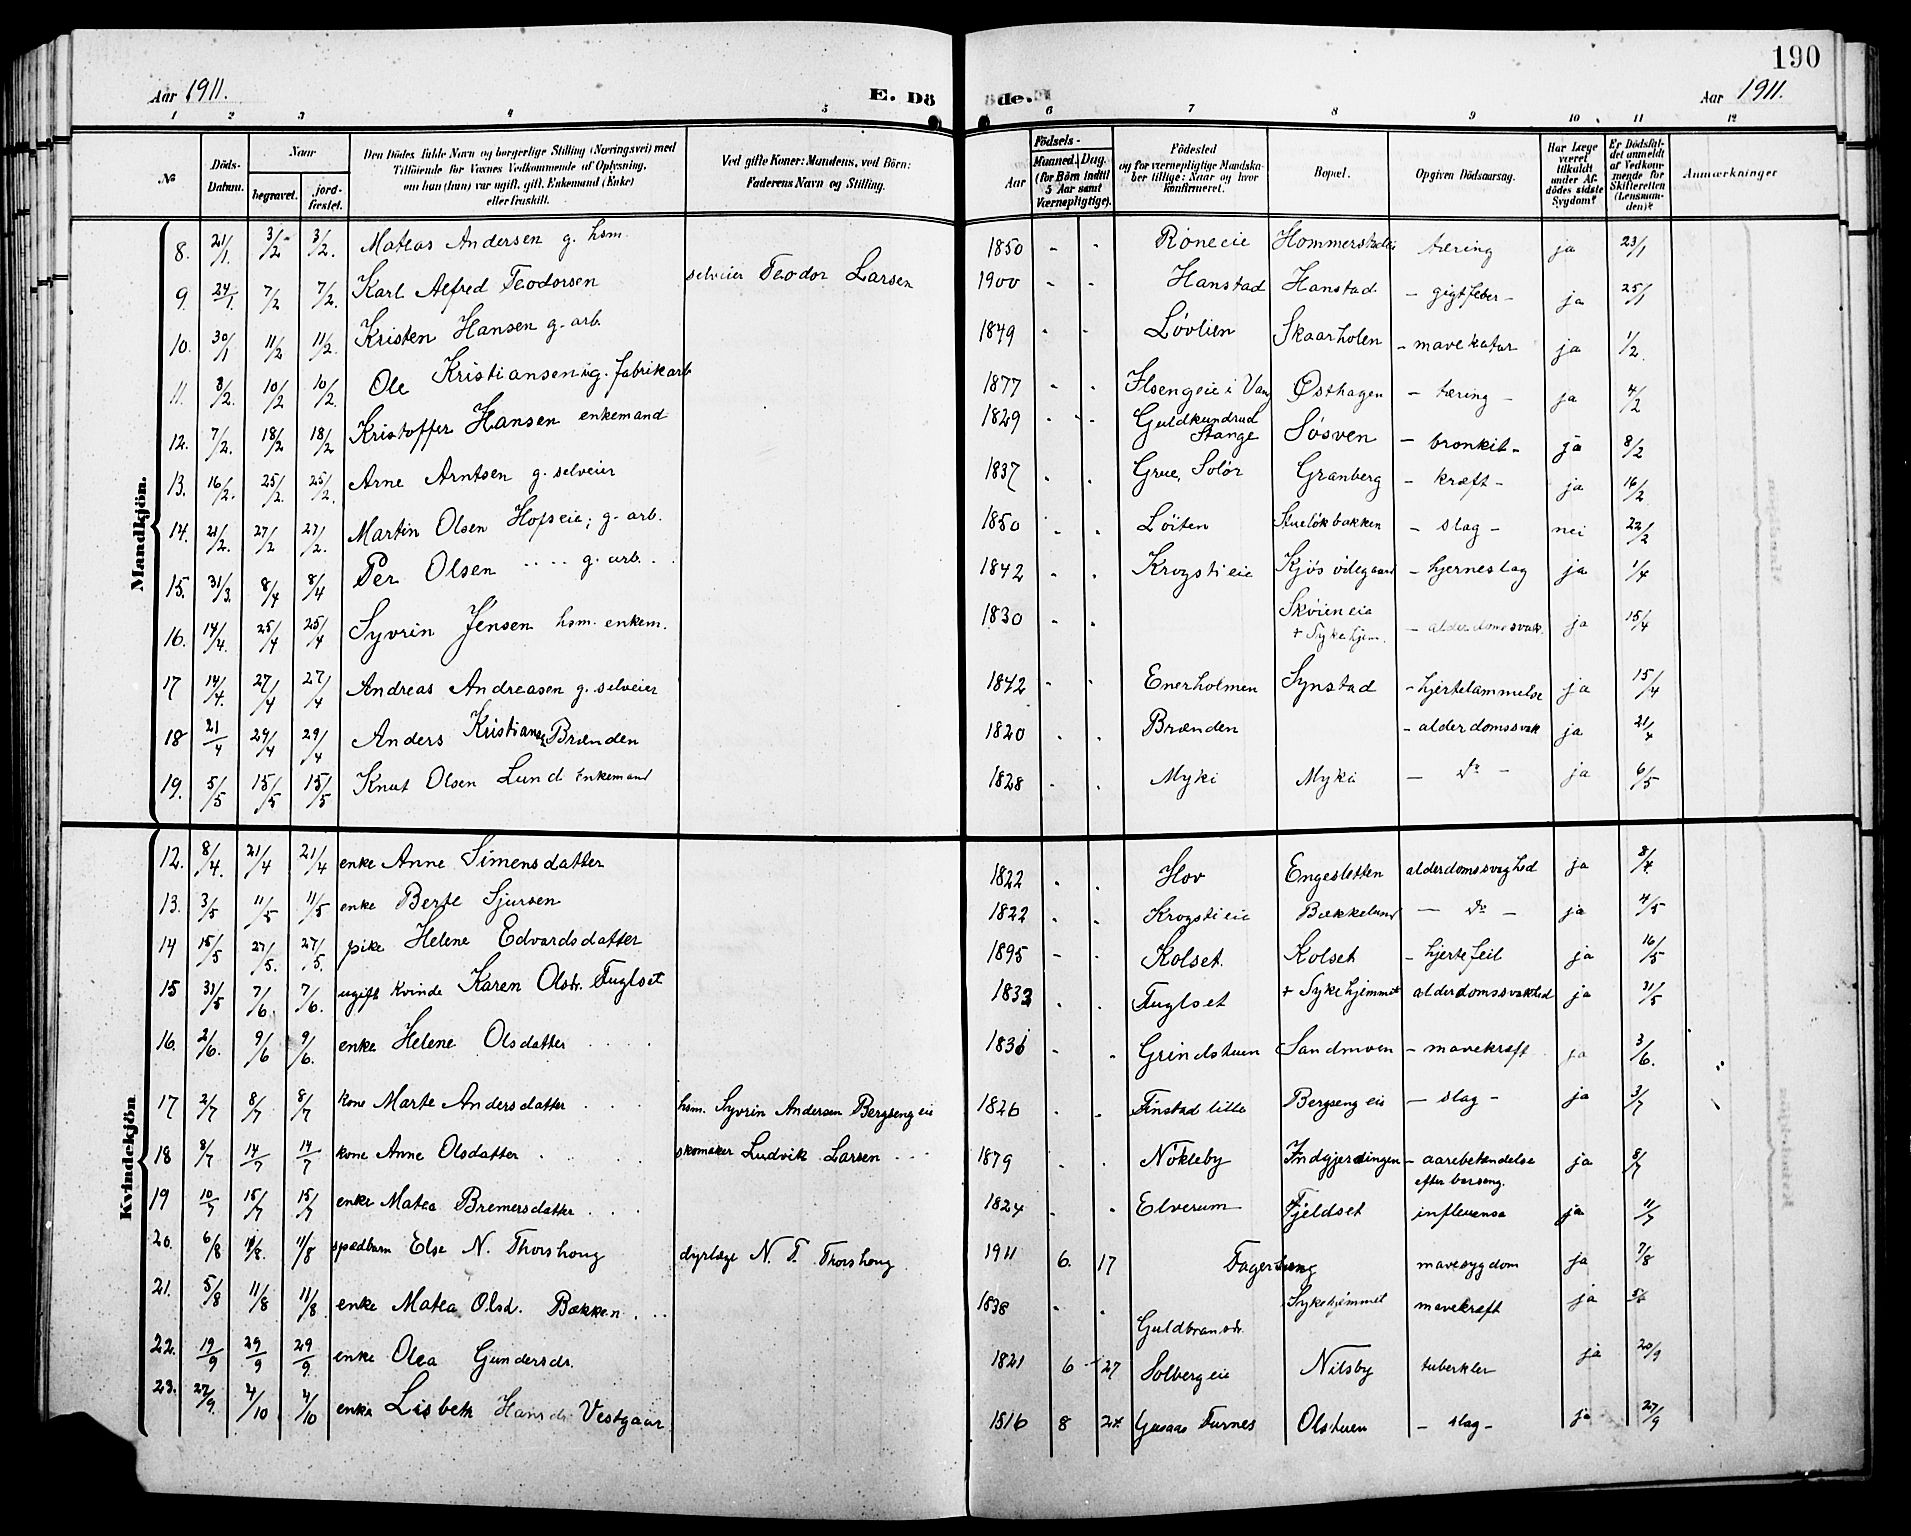 190
Aar 1911. E. Dö de. Aar 1911.
1 2 3 4 5 6 7 8 9 10 11 12
No
Döds-Datum.
Naar
begravet.
jord-fæstet.
Den Dödes fulde Navn og borgerlige Stilling (Næringsvei) med
Tilföiende for Voxnes Vedkommende af Oplysning,
om han (hun) var ugift, gift, Enkemand (Enke)
eller fraskilt.
Ved gifte Koner: Mandens, ved Börn:
Faderens Navn og Stilling.
Födsels-
Aar
Maaned. Dag.
(for Börn indtil
5 Aar samt
Værnepligtige).
Födested
og for værnepligtige Mandska-
ber tillige: Naar og hvor
konfirmeret.
Bopæl.
Opgiven Dödsaarsag.
Har Læge
været
tilkaldt
under Af-
dödes sidste
Sygdom?
Er Dödsfal-
det anmeldt
af Vedkom-
mende for
Skifteretten
(Lensman-
den)?
Anmærkninger
Mandkjön.
8. 21/1. 3/2 3/2. Mateas Andersen g. hsm. 1850 - - Röneeie tæring ja 23/1
9. 24/1 7/2 7/2. Karl Alfred Teodorsen selveier Teodor Larsen 1900 - - Hanstad Hanstad - gigtfeber - ja 25/1
10. 30/1 11/2 11/2. Kristen Hansen g. arb. 1849 - - Lövlien Skaarholen - mavekatar ja 1/2.
11. 3/2. 10/2 10/2. Ole Kristiansen ug. fabrikarb 1877 - - Ilsengeie i Vang Østhagen - tæring - ja 4/2
12. 7/2. 18/2 18/2 Kristoffer Hansen enkemand 1829 - - Guldkundrud Stange Søsven - bronkit - ja 8/2
13. 16/2. 25/2 25/2. Arne Arntsen g. selveier 1837 - - Grue, Solör Granberg - kræft - ja 16/2
14. 21/2. 27/2 27/2. Martin Olsen Hofseie; g. arb. 1850 - - Löiten - slag - nei 22/2
15. 31/3. 8/4 8/4 Per Olsen .... g. arb. .. 1842 - - Krogstieie Kjös ödegaard - hjerneslag ja 1/4
16. 14/4. 25/4 25/4 Syvrin Jensen hsm. enkem. 1830 - - Sköieneie + Sykehjem. - alderdomssvak. ja 15/4
17 14/4. 27/4 27/4 Andreas Andreasen g. selveier 1842 - - Enerholmen Synstad - hjertelammelse ja 15/4
18 21/4 29/4 29/4 Anders Brænden 1820 - - Brænden - alderdomssvak ja 21/4
19. 5/5 15/5 15/5 Knut Olsen Lund Enkemand 1828 - - Myki Myki - do - ja 6/5
Kvindekjön
12. 8/4. 21/4 21/4 enke Anne Simensdatter 1822 - - Hov Engesletten alderdomssvaghed ja 8/4
13. 3/5 11/5 11/5 enke Berte Sjursen 1822 - - Krogstieie Bækkelund - do - ja 4/5
14 15/5 27/5. 27/5. pike Helene Edvardsdatter 1895 - - Kolset. Kolset - hjertefeil ja 16/5
15 31/5 7/6 7/6. ugift kvinde Karen Olsdr. Fuglset 1833 - - Fuglset + Sykehjemmet alderdomssvakhed ja 31/5
16. 2/6. 9/6 9/6. enke Helene Olsdatter .... - - Grindstuen Sandmoen - mavekræft ja 3/6.
17 2/7 8/7 8/7 kone Marte Andersdatter ... hsm. Syvrin Andersen Bergsengeie 1826 - - Finstad lille Bergsengeie - slag - ja 3/7
18 8/7 14/7 14/7 kone Anne Olsdatter .... skomaker Ludvik Larsen ... 1879 - - Nökleby Indgjerdingen - aarebetændelse efter barseng. ja 8/7
19 10/7 15/7 15/7 enke Matea Bremersdatter ... 1824 - - Elverum Fjeldset influensa ja 11/7
20. 6/8 11/8. 11/8 spædbarn Else N. Thorshoug dyrlæge N. T. Thorshoug 1911 6. 17 mavesygdom ja 7/8
21. 5/8 11/8 11/8 enke Matea Olsd. Bækken ... 1838 - - Sykehjemmet mavekræft ja
22. 19/9 29/9 29/9. enke Olea Gundersdr. 1821 6 27 Guldbransdr. Solbergeie Nilsby tuberkler ja 20/9
23. 27/9. 4/10 4/10 enke Lisbeth Hansdr Vestgaar 1816 8 24 Furnes Olstuen - slag - ja 27/9